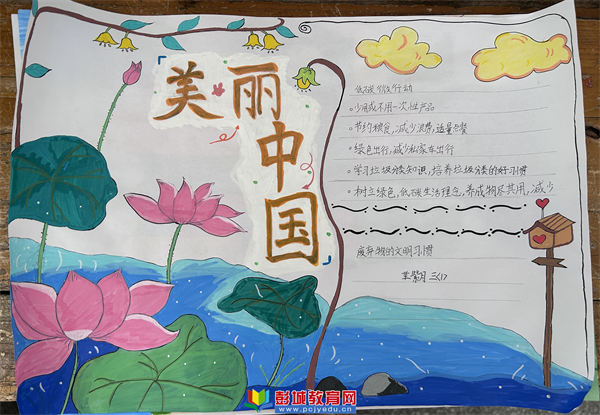 美丽中国
低碳微行动
少用或不用一次性产品
节约粮食,减少浪费,适量点餐
绿色出行,减少私家车出行
学习垃圾分类知识,培养垃圾分类的好习惯
树立绿色,低碳生活理念,养成物尽其用,减少
废弃物的文明习惯
紫月 三(1)
彭城教育网
www.pcjyedu.cn